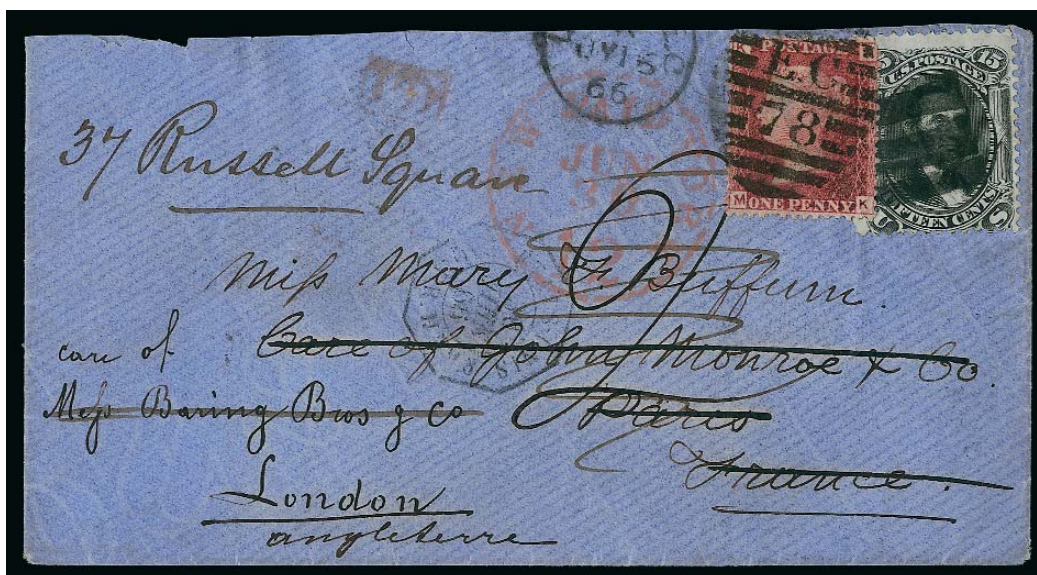 JY 15
66
POSTAGE
E.C.
78
M ONE PENNY K
15
U.S. POSTAGE
FIFTEEN CENTS
U S
PAID
JUN
37 Russell Square
Miss Mary F. Buffum.
care of
Care of John Monroe & Co.
Mess Baring Bros & Co
Paris
France.
London
angleterre